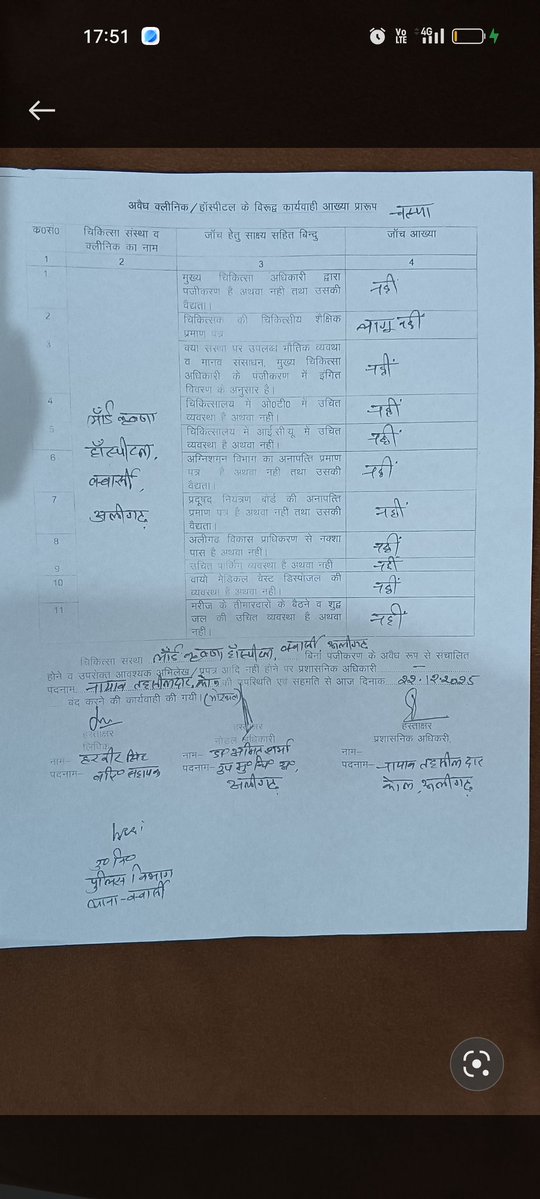 17:51
Vo LTE 4G
अवैध क्लीनिक/हॉस्पीटल के विरूद्व कार्यवाही आख्या प्रारूप
क०स० चिकित्सा संस्था व क्लीनिक का नाम जॉच हेतु साक्ष्य सहित बिन्दु जॉच आख्या
1 2 3 4
1 मुख्य चिकित्सा अधिकारी द्वारा
पंजीकरण है अथवा नही तथा उसकी नहीं
वैद्यता।
2 चिकित्सक की चिकित्सीय शैक्षिक लागू नहीं
प्रमाण पत्र
3 क्या संस्था पर उपलब्ध भौतिक व्यवथा
व मानव संसाधन, मुख्य चिकित्सा नहीं
अधिकारी के पंजीकरण में इंगित
विवरण के अनुसार है।
4 चिकित्सालय में ओ०टी० में उचित नहीं
व्यवस्था है अथवा नही।
5 चिकित्सालय में आई.सी.यू. में उचित नहीं
व्यवस्था है अथवा नही।
6 अग्निशमन विभाग का अनापत्ति प्रमाण
पत्र है अथवा नही तथा उसकी नहीं
वैद्यता।
हॉस्पीटल,
क्वार्सी,
अलीगढ़
7 प्रदूषद नियंत्रण बोर्ड की अनापत्ति
प्रमाण पत्र है अथवा नही तथा उसकी नहीं
वैद्यता।
8 अलीगढ विकास प्राधिकरण से नक्शा नहीं
पास है अथवा नही।
9 उचित पार्किंग व्यवस्था है अथवा नही नहीं
10 बायो मेडिकल वेस्ट डिस्पोजल की नहीं
व्यवस्था है अथवा नही।
11 मरीज के तीमारदारों के बैठने व शुद्व
जल की उचित व्यवस्था है अथवा नहीं
नही।
चिकित्सा संस्था हॉस्पीटल, क्वार्सी अलीगढ़ बिना पंजीकरण के अवैध रूप से संचालित
होने व उपरोक्त आवश्यक अभिलेख/प्रपत्र आदि नही होने पर प्रशासनिक अधिकारी
पदनाम नायब तहसीलदार, कोल की उपस्थिति एवं सहमति से आज दिनांक 22.12.2025
बंद करने की कार्यवाही की गयी।
हस्ताक्षर हस्ताक्षर हस्ताक्षर
लिपिक नोडल अधिकारी प्रशासनिक अधिकरी,
नाम- नाम- डा० शर्मा नाम-
पदनाम- पदनाम- पदनाम- नायब तहसीलदार
अलीगढ़ कोल, अलीगढ़
उ० नि०
पुलिस विभाग
थाना-क्वार्सी